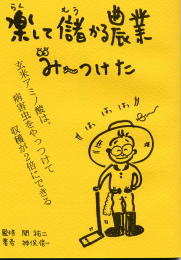 らく もう
楽して儲かる農業
み〜つけた
玄米アミノ酸は、
病害虫をやっつけて
収穫が2倍にできる
ふふふふ
監修 関 祐二
著者 神保